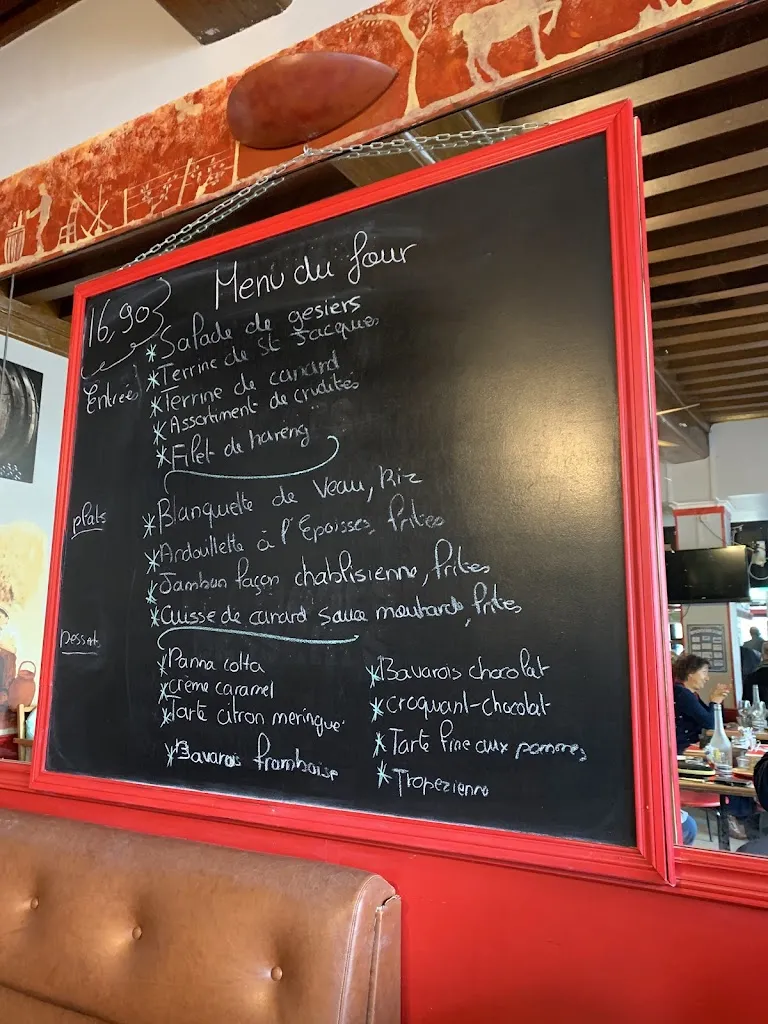 Menu du Jour
16,90
Entrées
*Salade de gesiers
*Terrine de St Jacques
*Terrine de canard
*Assortiment de crudités
*Filet de hareng
plats
*Blanquette de Veau, Riz
*Andouillette à l'Epoisses, frites
*Jambon façon chablisienne, frites
*Cuisse de canard sauce moutarde, frites
Desserts
*Panna cotta
*crème caramel
*Tarte citron meringué
*Bavarois framboise
*Bavarois chocolat
*croquant-chocolat
*Tarte fine aux pommes
*Tropezienne